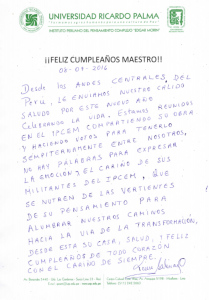 UNIVERSIDAD RICARDO PALMA
INSTITUTO PERUANO DEL PENSAMIENTO COMPLEJO "EDGAR MORIN"
¡¡FELIZ CUMPLEAÑOS MAESTRO!!
08-07-2016
Desde los ANDES CENTRALES, DEL
PERU, LE ENVIAMOS NUESTRO CALIDO
SALUDO POR ESTE NUEVO AÑO
CELEBRANDO LA VIDA. ESTAMOS REUNIDOS
EN EL IPCEM COMPARTIENDO SU OBRA
Y HACIENDO VOTOS PARA TENERLO
SEMPITERNAMENTE ENTRE NOSOTROS,
NO HAY PALABRAS PARA EXPRESAR
LA EMOCION Y EL CARIÑO DE SUS
MILITANTES DEL IPCEM, QUE
SE NUTREN DE LAS VERTIENTES
DE SU PENSAMIENTO PARA
ALUMBRAR NUESTROS CAMINOS
HACIA LA VIA DE LA TRANSFORMACIÓN,
DESDE ESTA SU CASA, SALUD, Y FELIZ
CUMPLEAÑOS DE TODO CORAZÓN
CON EL CARIÑO DE SIEMPRE.